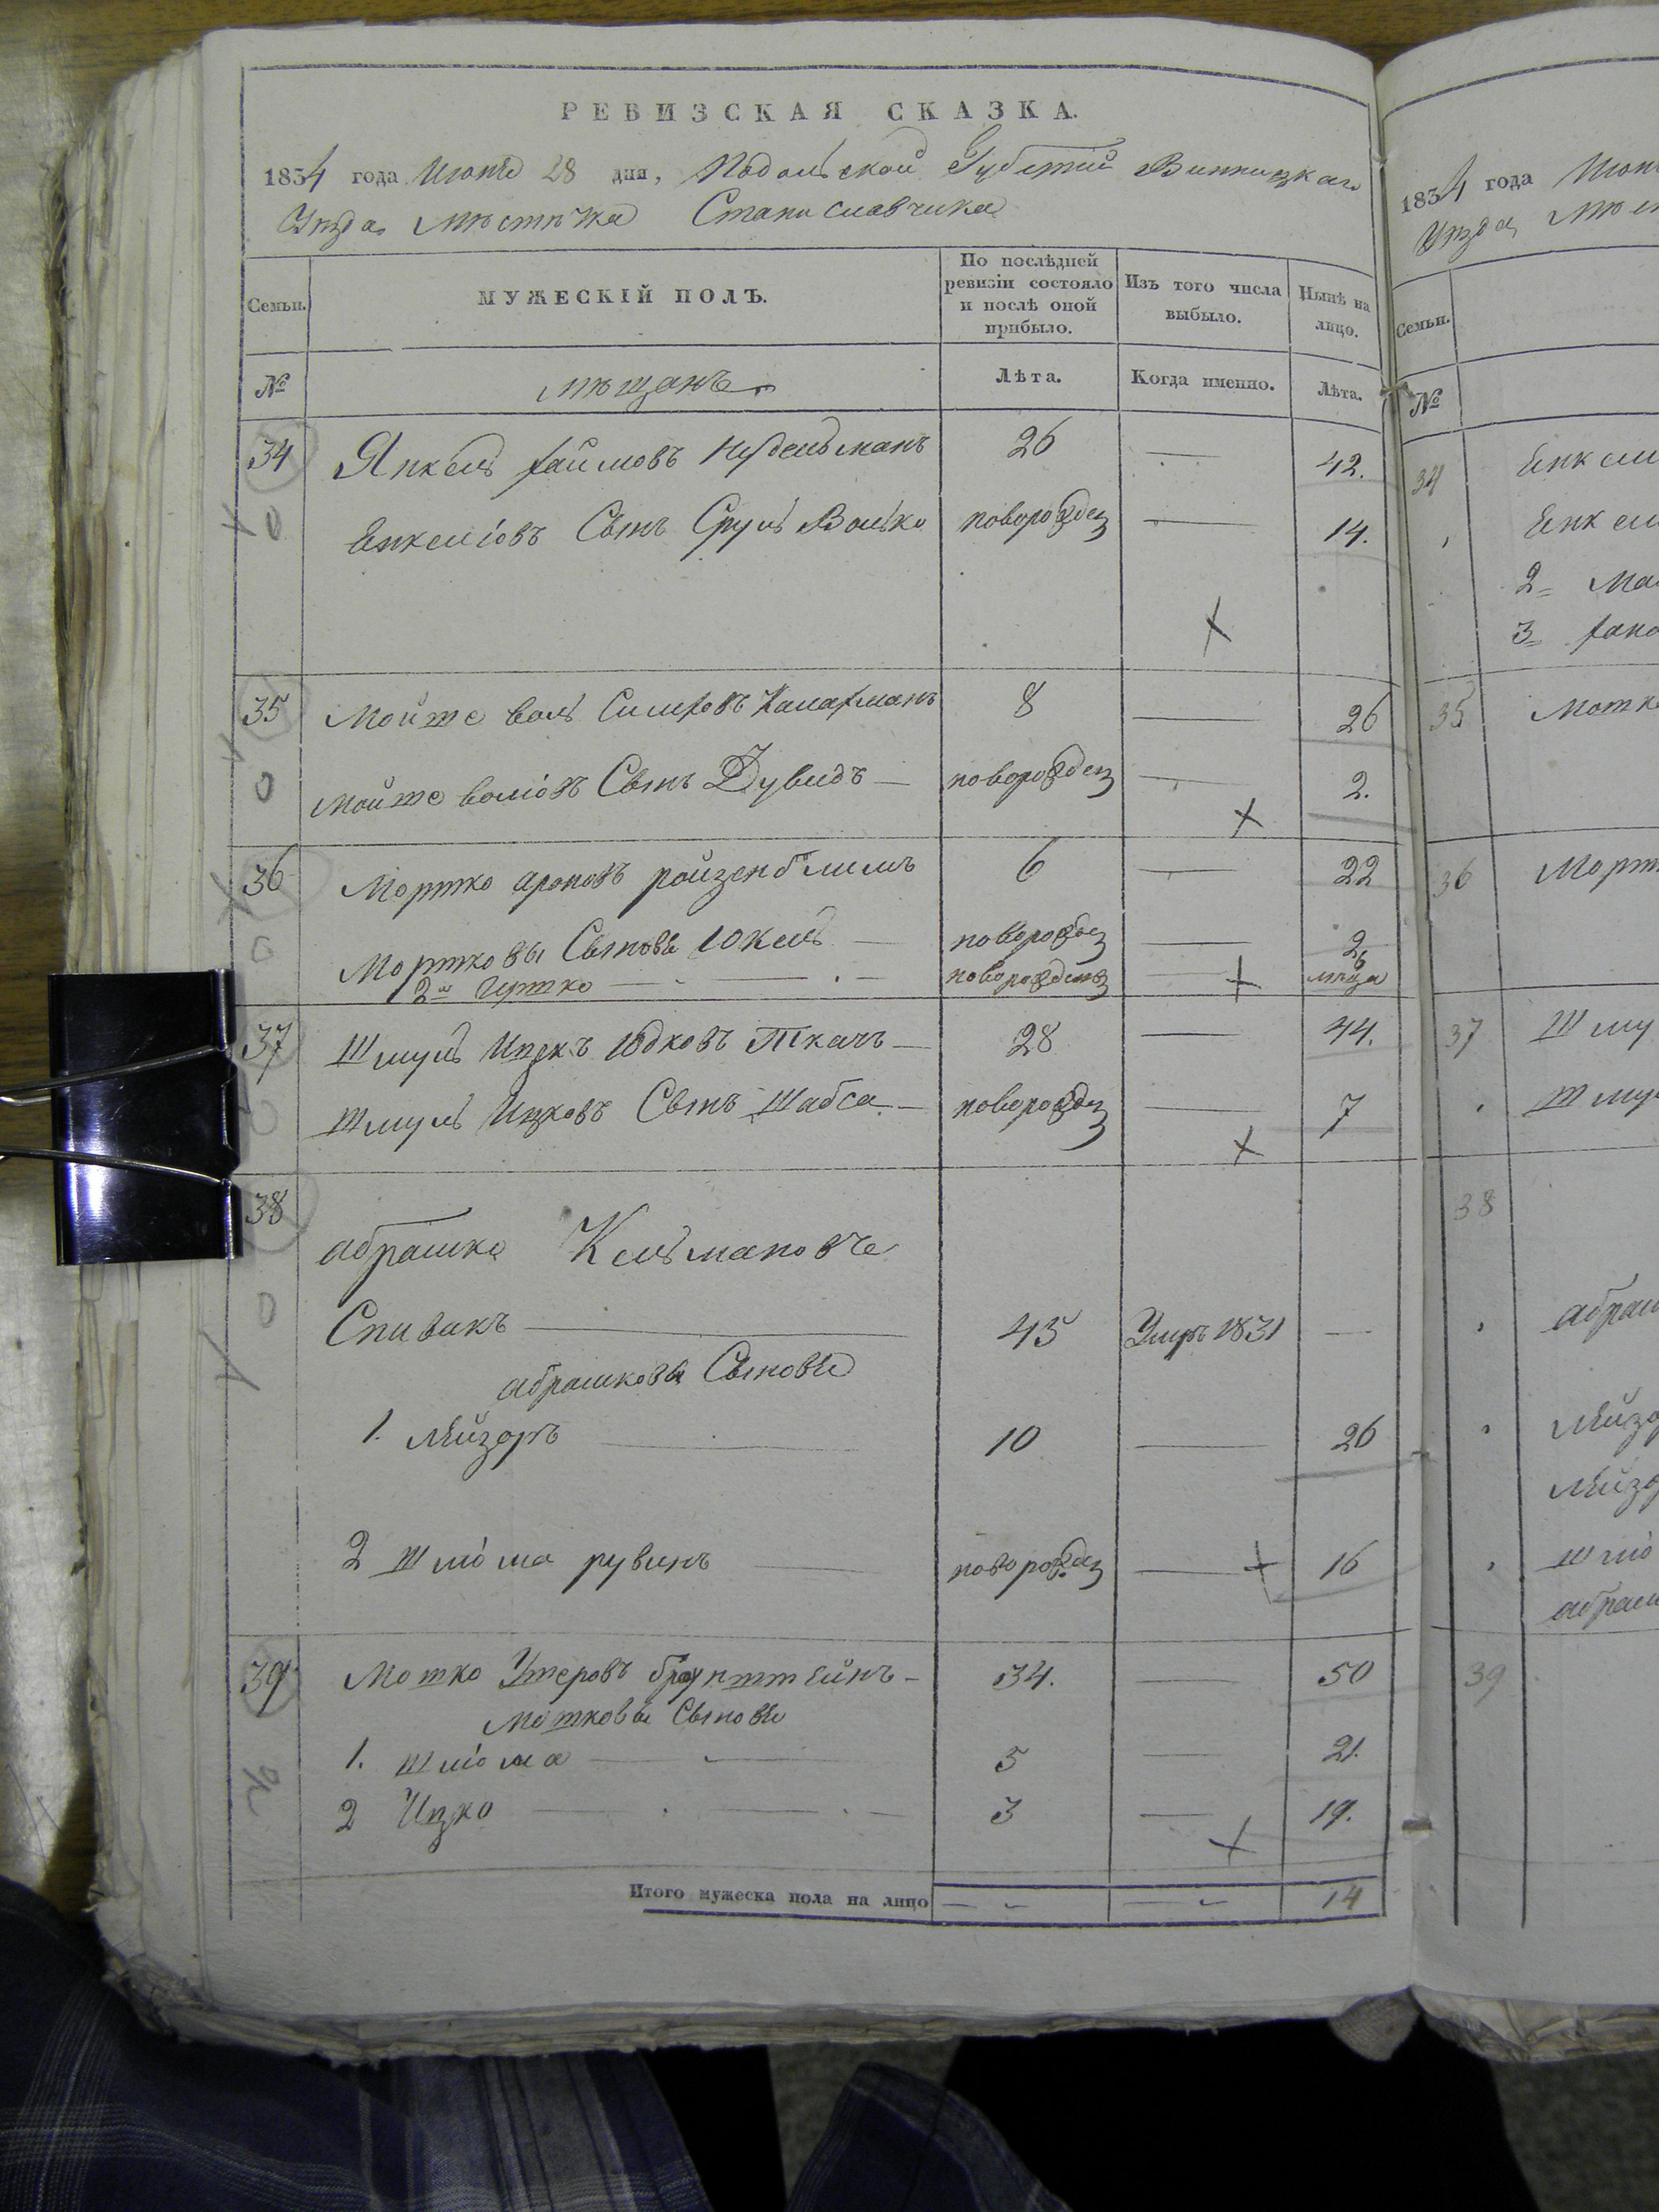 РЕВИЗСКАЯ СКАЗКА.
1834 года Июня 28 дня, Подольской Губернии Винницкаго
Уезда Мѣстѣчка Станиславчика
Семьи. МУЖЕСКІЙ ПОЛЪ. По послѣдней ревизіи состояло и послѣ оной прибыло. Изъ того числа выбыло. Нынѣ на лицо.
№ мѣщанъ Лѣта. Когда именно. Лѣта.
34 Янкель Хаимовъ Нудельманъ 26 — 42.
Енкеліовъ Сынъ Сруль Волько новорожден — 14.
35 Мойше воль 8 — 26
Мойше воліовъ Сынъ Дувидъ — новорожден — 2.
36 Мортко ароновъ ройзенблимъ 6 — 22
Мортковы Сыновья Юкель — новорожден — 2
2й новорожденъ —
37 Шмуль Ицекъ Юдковъ Ткачъ — 28 — 44.
Шмуль Ицковъ Сынъ Шабса — новорожден — 7
38
абрашко Кельмановъ
Спивакъ — 45 Умръ 1831 —
абрашковы Сыновья
1. Лейзоръ — 10 — 26
2 Шліома рувинъ — новорожден — 16
39 Мотко Ушеровъ браунштейнъ — 34. — 50
Мотковы Сыновья
1. Шліома — 5 — 21.
2 Ицко — 3 — 19.
Итого мужеска пола на лицо — — 14
1834 года
Семьи.
№
34
35
36
37
38
39